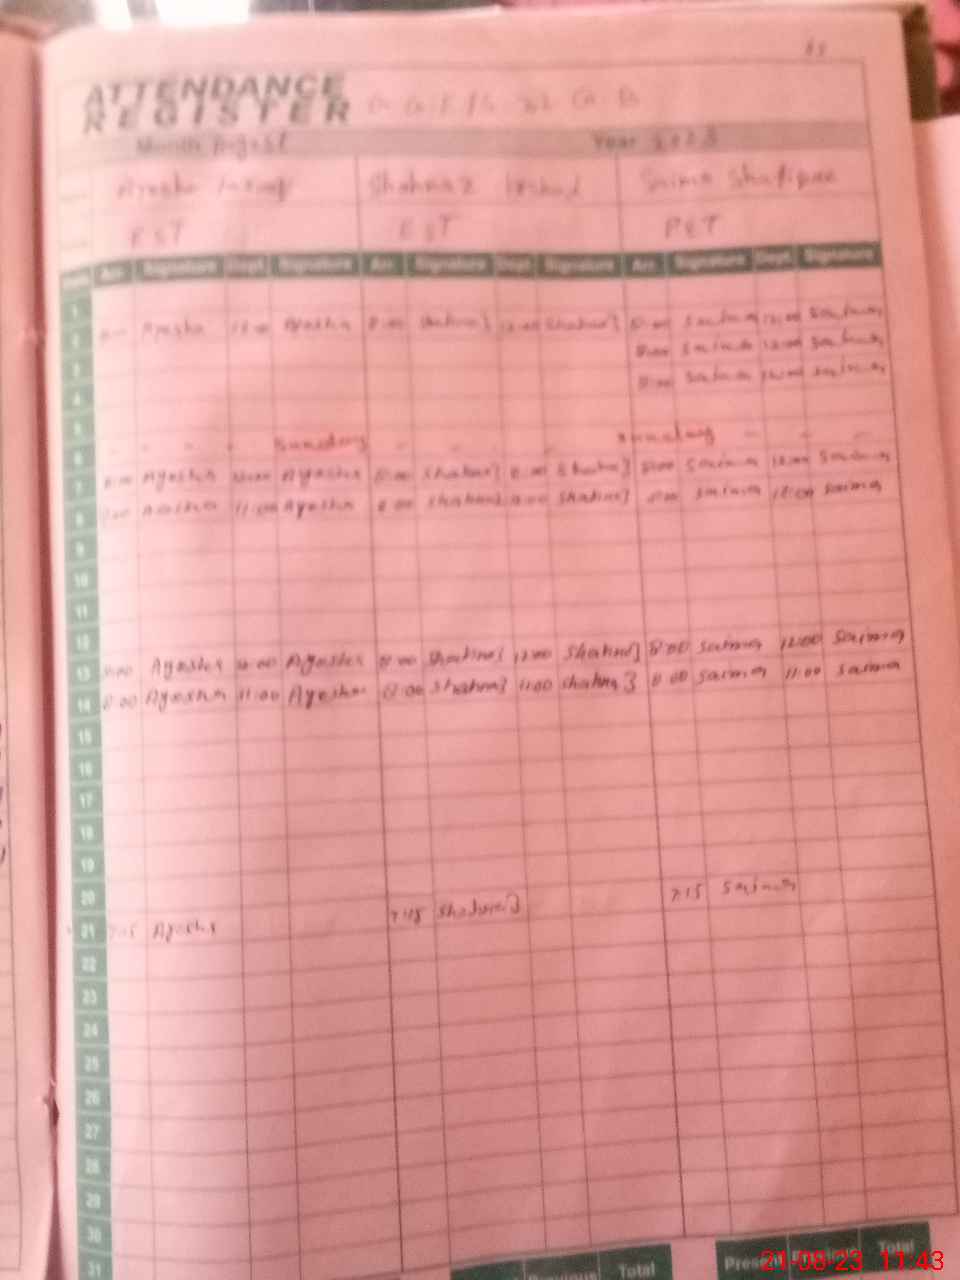 ATTENDANCE
REGISTER
Month August Year 2023
Ayesha Shahnaz Irshad Saima Shafique
EST EST PET
Arr. Signature Dept. Signature Arr. Signature Dept. Signature Arr. Signature Dept. Signature
1
2 Ayesha 12:00 Ayesha 8:00 Shahnaz 12:00 Shahnaz 8:00 Saima 12:00 Saima
3 8:00 Saima 12:00 Saima
4 8:00 Saima 12:00 Saima
5
6 Sunday Sunday
7 8:00 Ayesha 12:00 Ayesha 8:00 Shahnaz Shahnaz 8:00 Saima 12:00 Saima
8 Ayesha 11:00 Ayesha 8:00 Shahnaz Shahnaz 8:00 Saima Saima
9
10
11
12
13 8:00 Ayesha 12:00 Ayesha 8:00 Shahnaz 12:00 Shahnaz 8:00 Saima 12:00 Saima
14 8:00 Ayesha 11:00 Ayesha 8:00 Shahnaz 11:00 Shahnaz 8:00 Saima 11:00 Saima
15
16
17
18
19
20
21 7:15 Ayesha 7:15 Shahnaz 7:15 Saima
22
23
24
25
26
27
28
29
30
31
Previous Total Present Previous Total
21-08-23 11:43